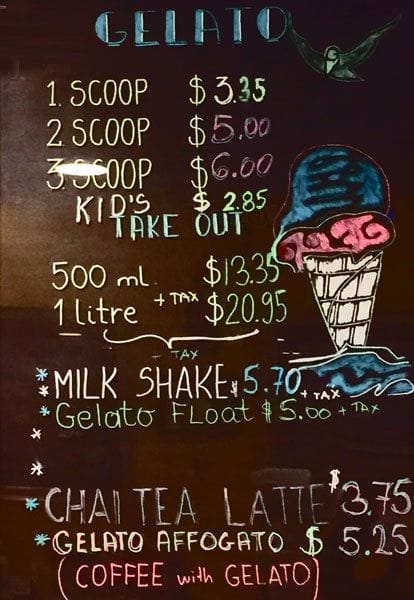 GELATO
1. SCOOP $3.35
2. SCOOP $5.00
3. SCOOP $6.00
KID'S $2.85
TAKE OUT
500 ml. $13.35
1 litre + TAX $20.95
- TAX
*MILK SHAKE $5.70 + TAX
*Gelato Float $5.00 + TAX
*
*
*CHAI TEA LATTE $3.75
*GELATO AFFOGATO $5.25
(COFFEE with GELATO)